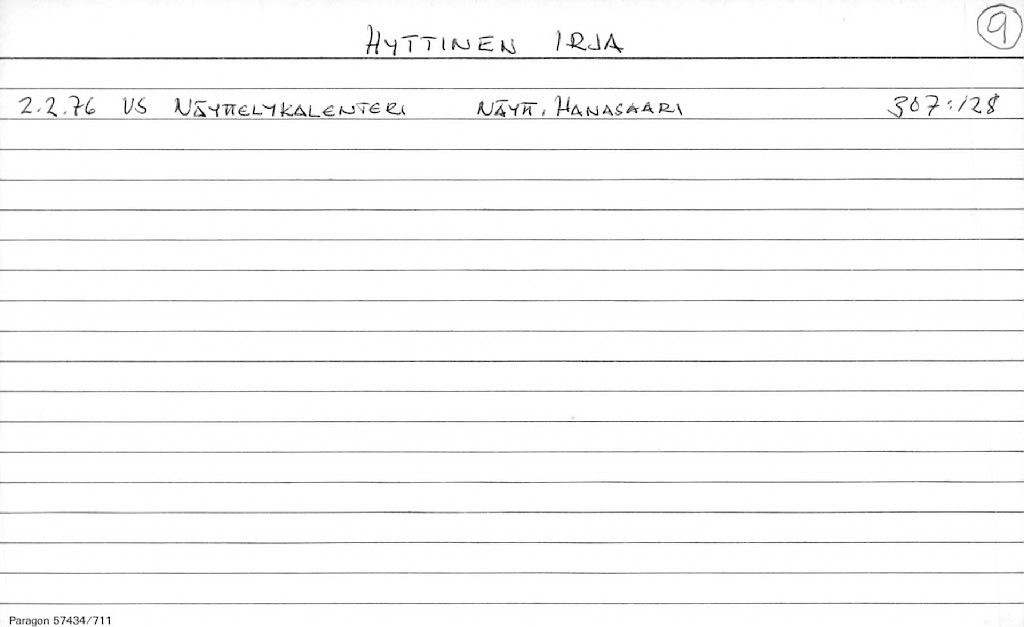 HYTTINEN IRJA
9
2.2.76 US NÄYTTELYKALENTERI NÄYTT. HANASAARI 307:128
Paragon 57434/711